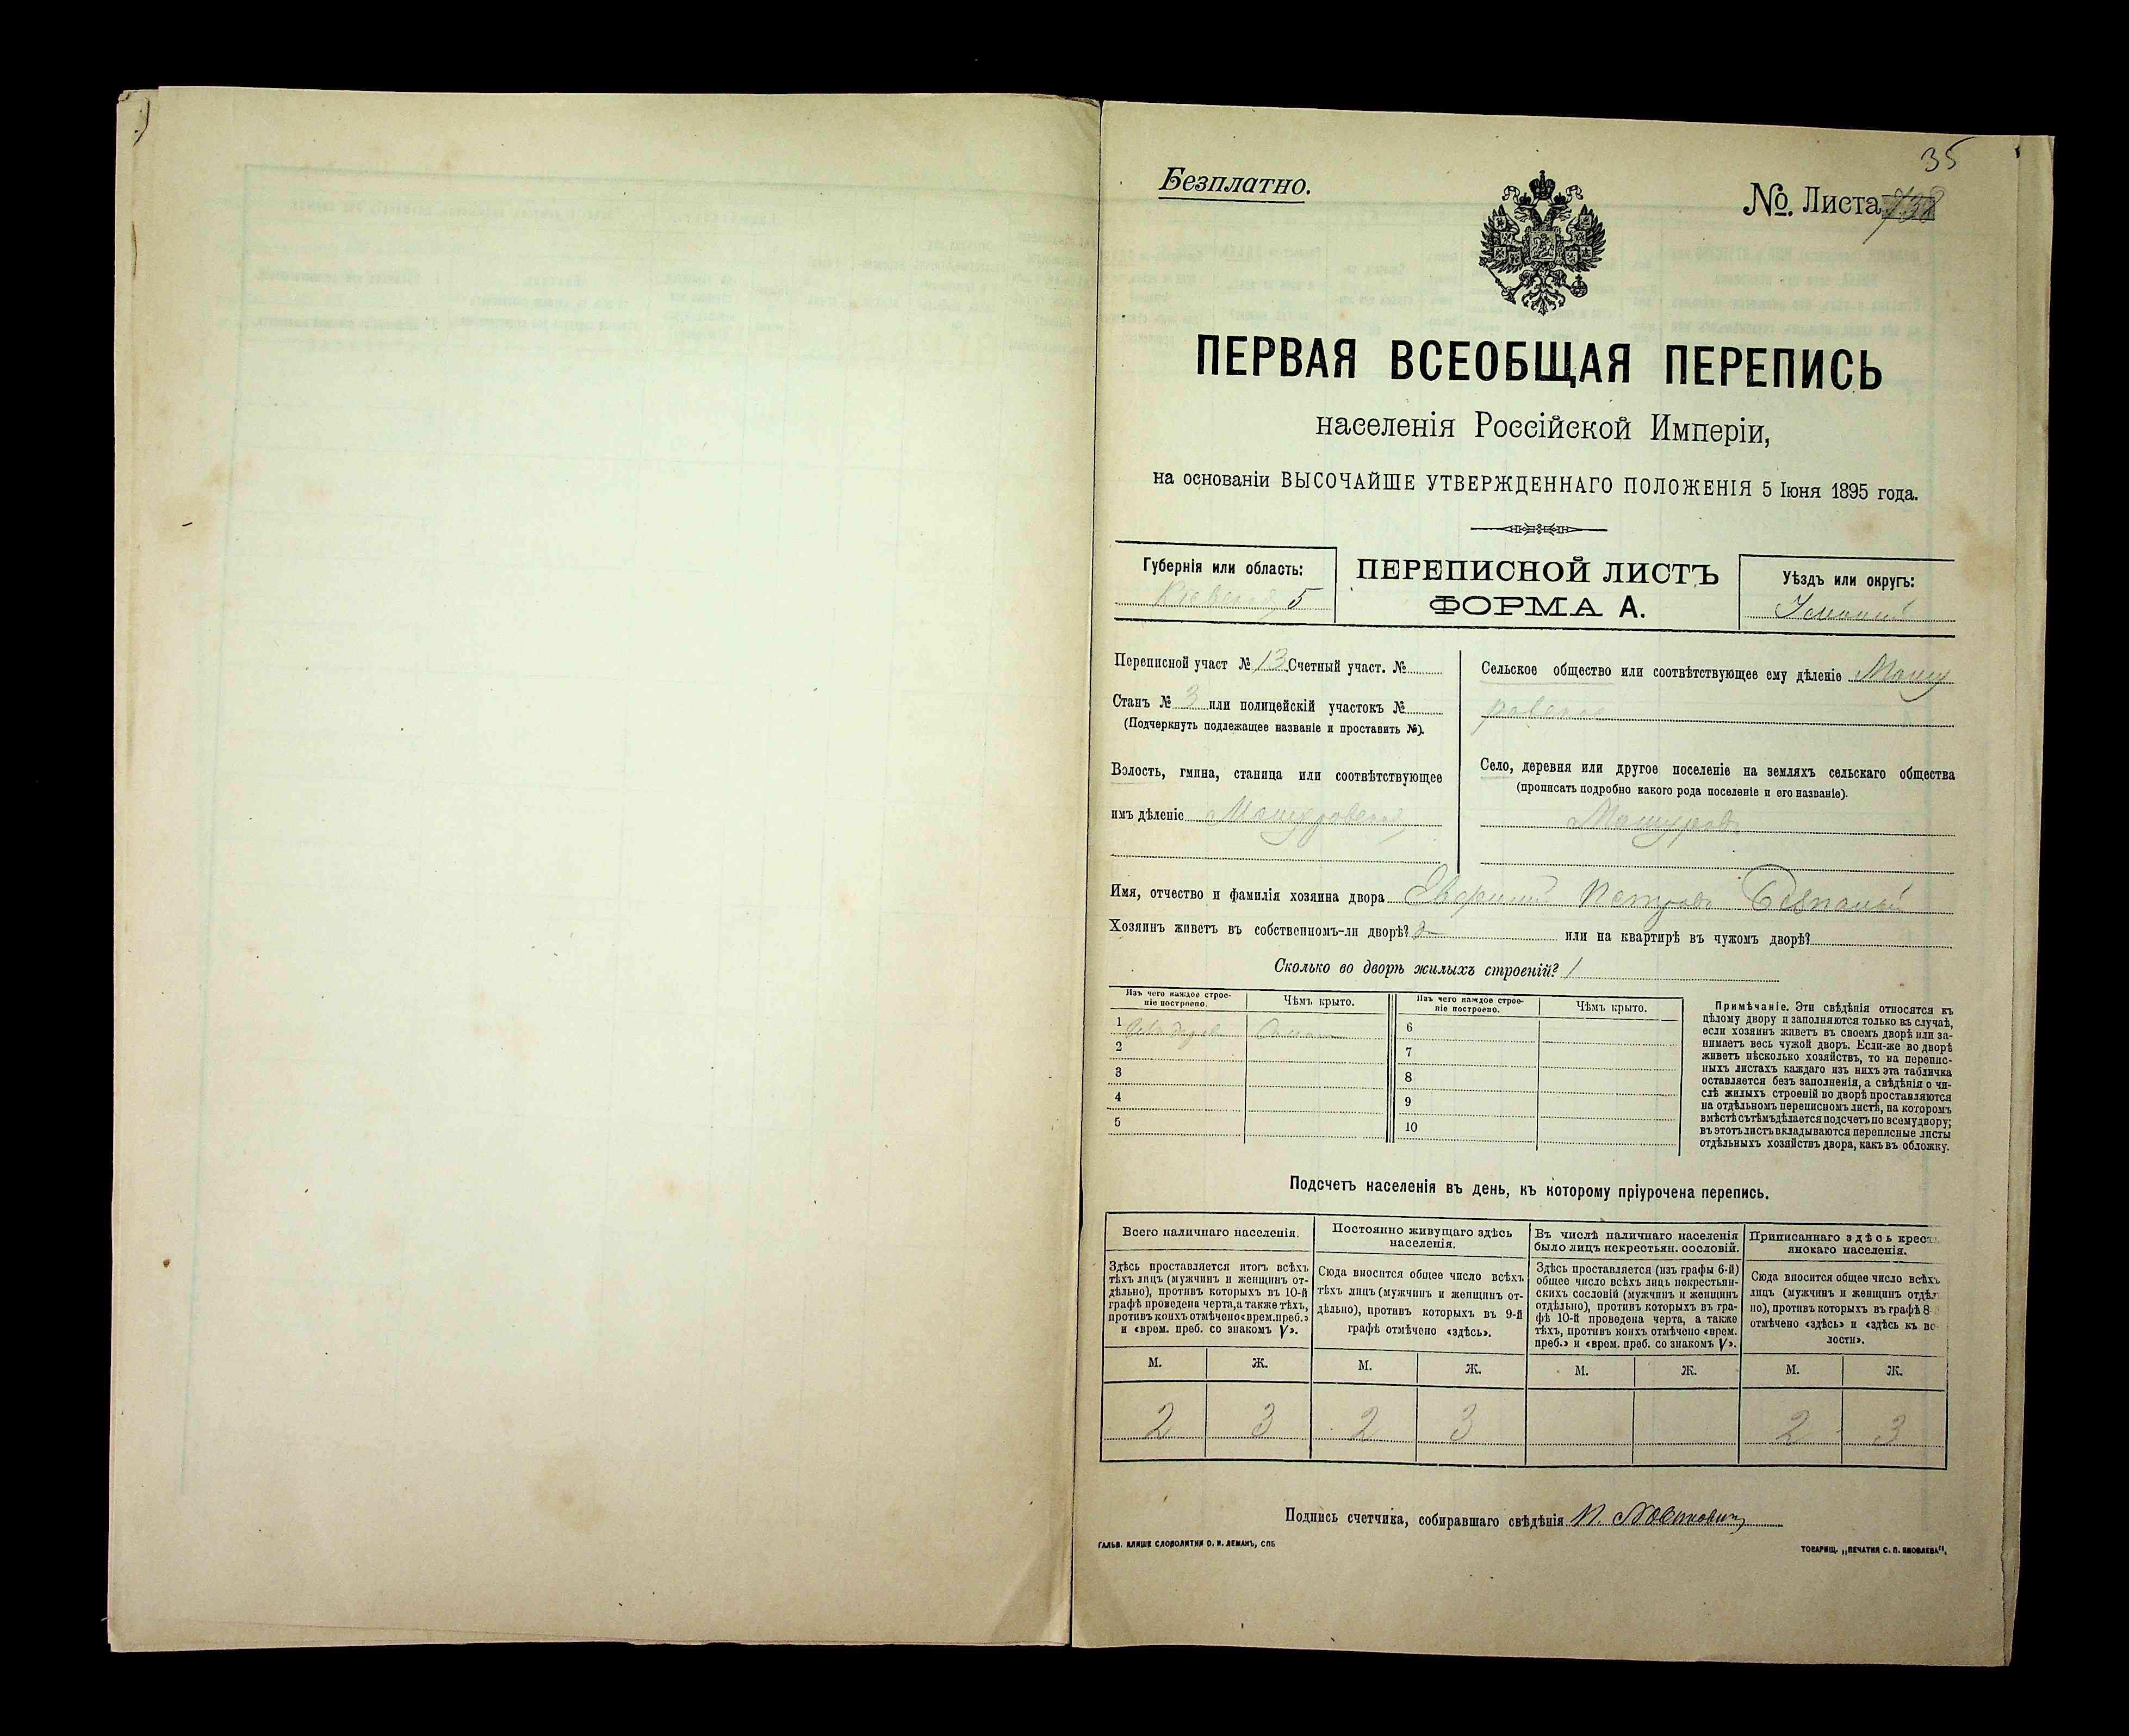 35
Безплатно.
№. Листа 738
ПЕРВАЯ ВСЕОБЩАЯ ПЕРЕПИСЬ
населенія Россійской Имперіи,
на основаніи ВЫСОЧАЙШЕ УТВЕРЖДЕННАГО ПОЛОЖЕНІЯ 5 Іюня 1895 года.
Губернія или область:
Кіевская 5
ПЕРЕПИСНОЙ ЛИСТЪ
ФОРМА А.
Уѣздъ или округъ:
Переписной участ № 13 Счетный участ. №
Станъ № 3 или полицейскій участокъ №
(Подчеркнуть подлежащее названіе и проставить №).
Волость, гмина, станица или соотвѣтствующее
имъ дѣленіе
Сельское общество или соотвѣтствующее ему дѣленіе
Село, деревня или другое поселеніе на земляхъ сельскаго общества
(прописать подробно какого рода поселеніе и его названіе).
Имя, отчество и фамилія хозяина двора Петровъ
Хозяинъ живетъ въ собственномъ-ли дворѣ? или на квартирѣ въ чужомъ дворѣ?
Сколько во дворѣ жилыхъ строеній? 1
Изъ чего каждое строе-
ніе построено.
Чѣмъ крыто.
1
2
3
4
5
Изъ чего каждое строе-
ніе построено.
Чѣмъ крыто.
6
7
8
9
10
Примѣчаніе. Эти свѣдѣнія относятся къ
цѣлому двору и заполняются только въ случаѣ,
если хозяинъ живетъ въ своемъ дворѣ или за-
нимаетъ весь чужой дворъ. Если-же во дворѣ
живетъ нѣсколько хозяйствъ, то на перепис-
ныхъ листахъ каждаго изъ нихъ эта табличка
оставляется безъ заполненія, а свѣдѣнія о чи-
слѣ жилыхъ строеній во дворѣ проставляются
на отдѣльномъ переписномъ листѣ, на которомъ
вмѣстѣ съ тѣмъ дѣлается подсчетъ по всему двору;
въ этотъ листъ вкладываются переписные листы
отдѣльныхъ хозяйствъ двора, какъ въ обложку.
Подсчетъ населенія въ день, къ которому пріурочена перепись.
Всего наличнаго населенія.
Здѣсь проставляется итогъ всѣхъ
тѣхъ лицъ (мужчинъ и женщинъ от-
дѣльно), противъ которыхъ въ 10-й
графѣ проведена черта, а также тѣхъ,
противъ коихъ отмѣчено «врем. преб.»
и «врем. преб. со знакомъ V».
М.
Ж.
2
3
Постоянно живущаго здѣсь
населенія.
Сюда вносится общее число всѣхъ
тѣхъ лицъ (мужчинъ и женщинъ от-
дѣльно), противъ которыхъ въ 9-й
графѣ отмѣчено «здѣсь».
М.
Ж.
2
3
Въ числѣ наличнаго населенія
было лицъ некрестьян. сословій.
Здѣсь проставляется (изъ графы 6-й)
общее число всѣхъ лицъ некрестьян-
скихъ сословій (мужчинъ и женщинъ
отдѣльно), противъ которыхъ въ гра-
фѣ 10-й проведена черта, а также
тѣхъ, противъ коихъ отмѣчено «врем.
преб.» и «врем. преб. со знакомъ V».
М.
Ж.
Приписаннаго здѣсь крест
янскаго населенія.
Сюда вносится общее число всѣхъ
лицъ (мужчинъ и женщинъ отдѣл
но), противъ которыхъ въ графѣ 8
отмѣчено «здѣсь» и «здѣсь къ во
лости».
М.
Ж.
2
3
Подпись счетчика, собиравшаго свѣдѣнія
ГАЛЬВ. КЛИШЕ СЛОВОЛИТНИ О. И. ЛЕМАНЪ, СПБ
ТОВАРИЩ. „ПЕЧАТНЯ С. П. ЯКОВЛЕВА".